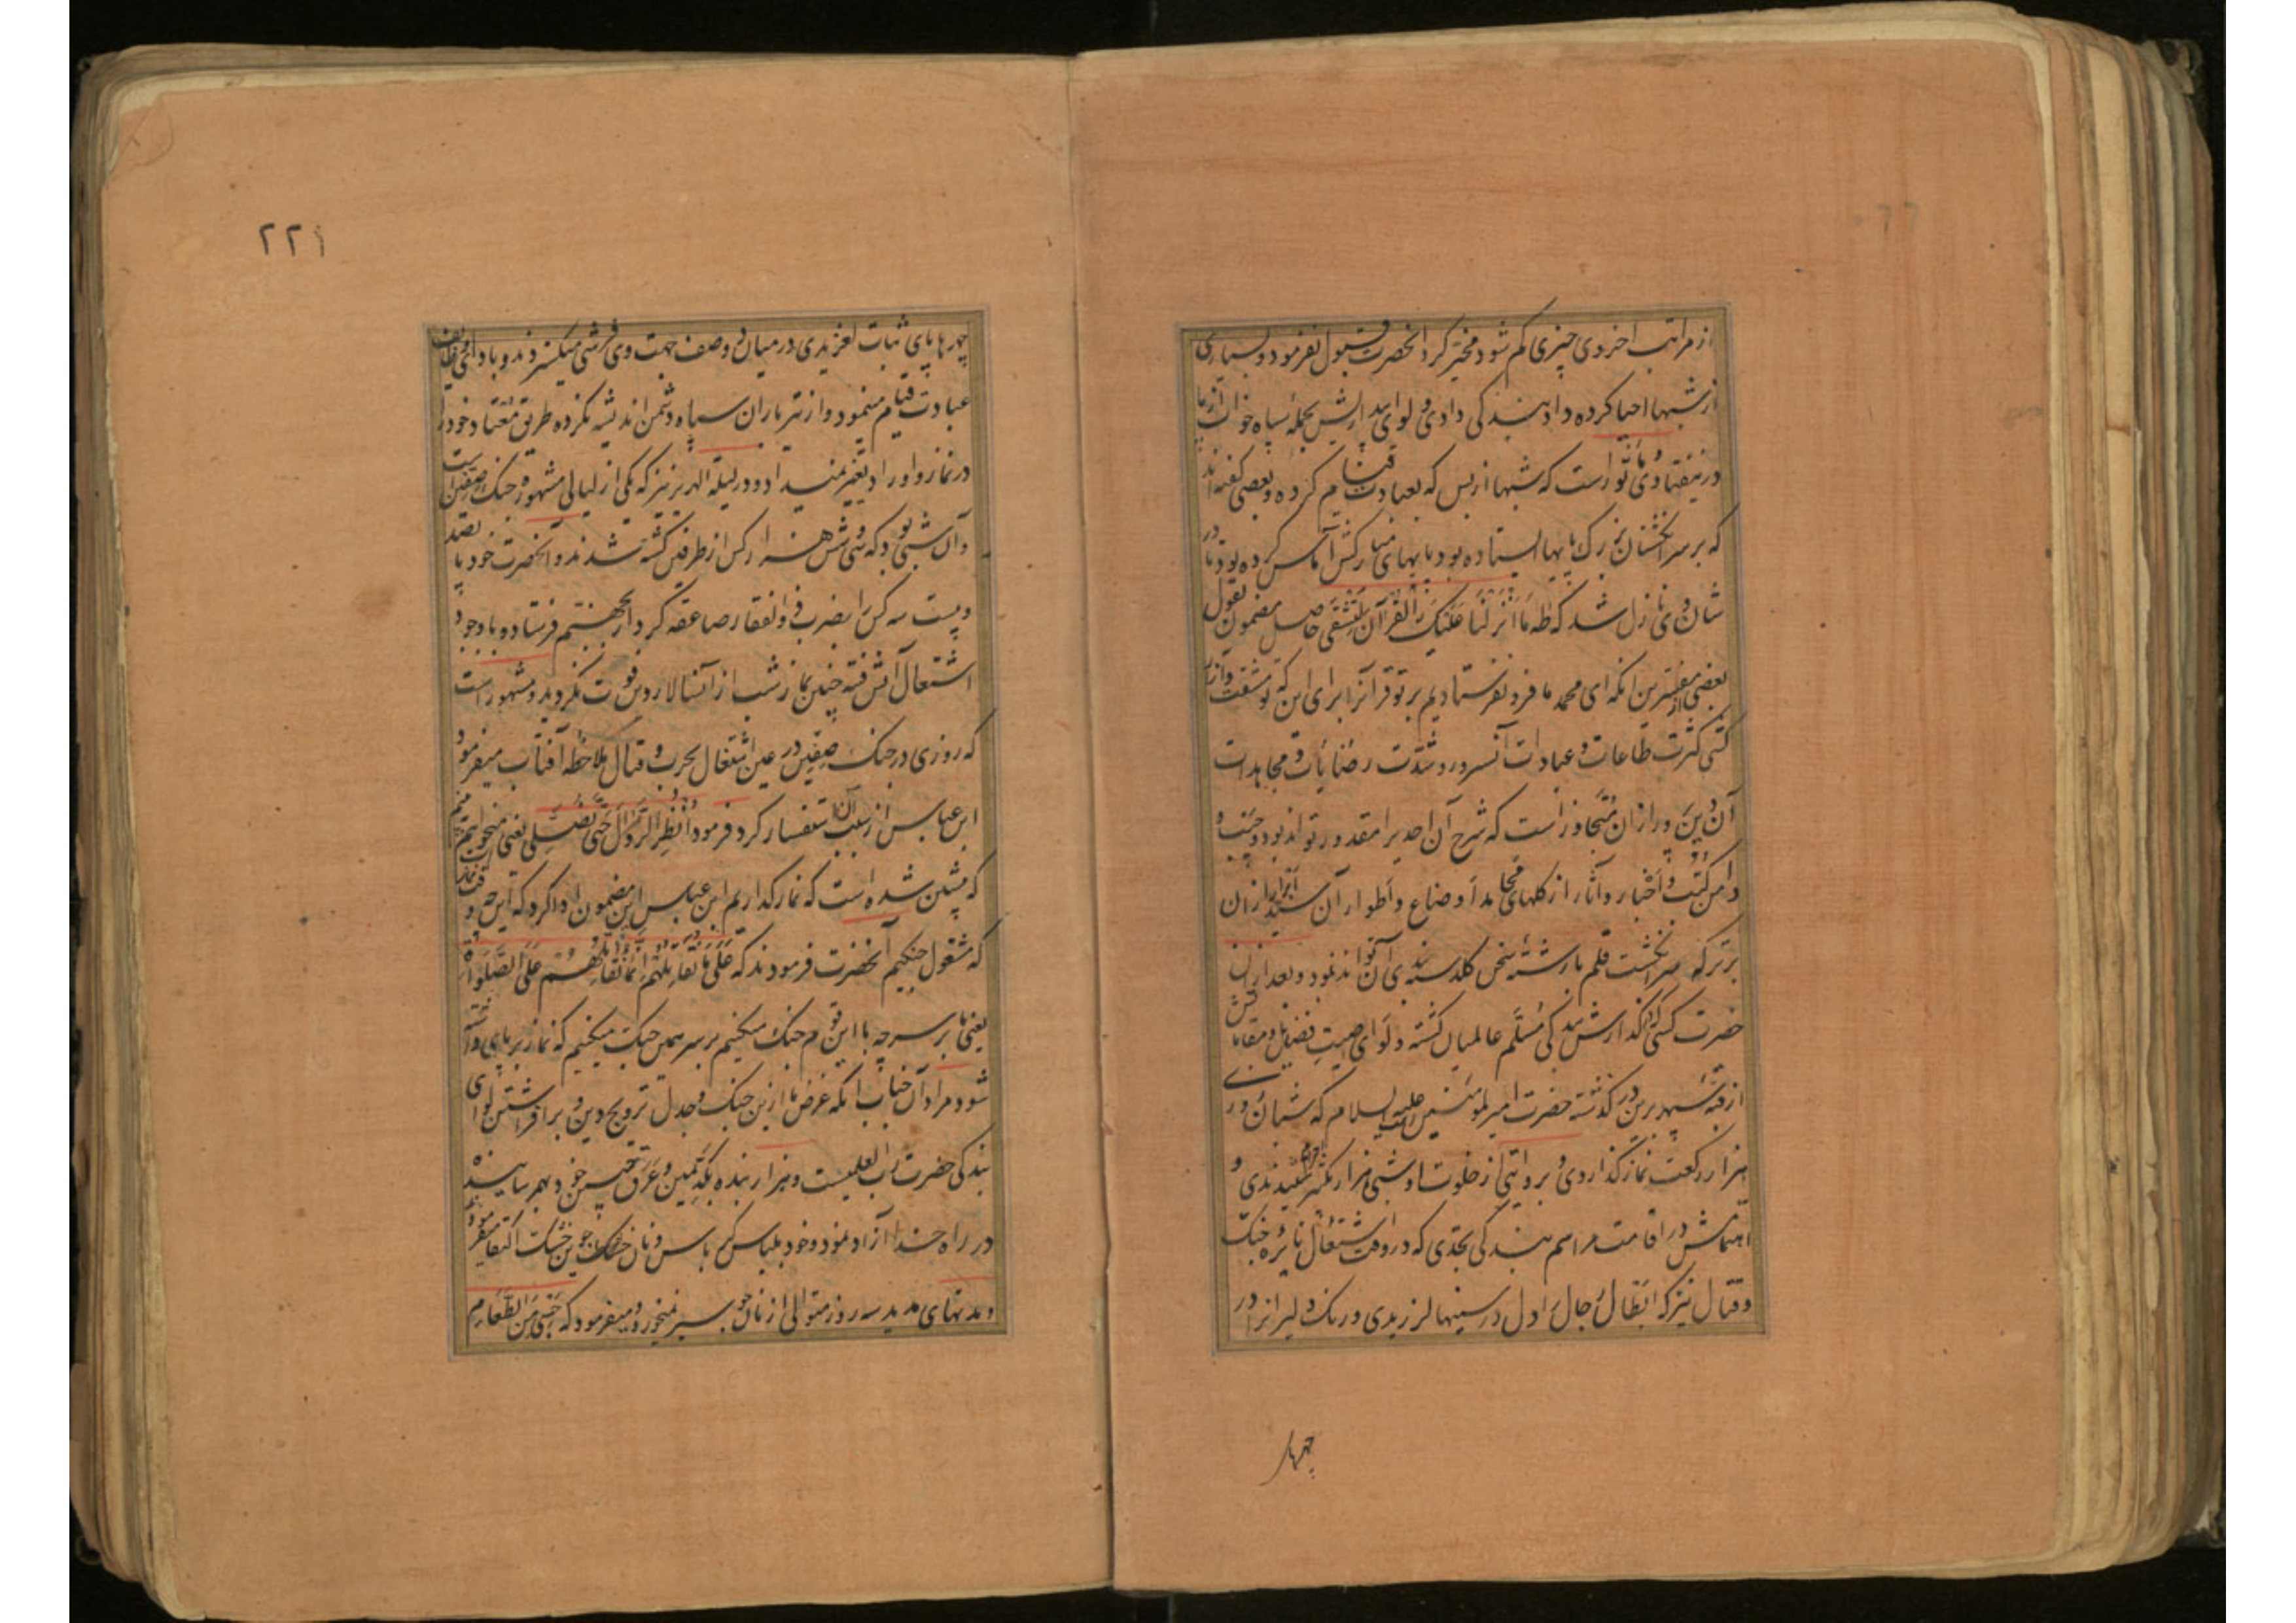 از مراتب اخروی چیزی کم شود مخیر کرد آنحضرت قبول نفرمود و بسیاری
از شبها احیا کرده داد بندگی دادی و لوای بجمله سپاه خواب
است که شبها از بس که بعبادت قیام کرده و بعضی گفته اند
که بر سر انگشتان بزرگ پایها ایستاده بود پایهای مبارکش آماس کرده بود تا در
شان وی نازل شد که طه ما انزلنا علیک القرآن لتشقی حاصل مضمون بقول
بعضی از مفسرین آنکه ای محمد ما فرو نفرستادیم بر تو قرآنرا برای این که تو مشقت و آزار
کشی کثرت طاعات و عبادات آنسرور و شدت ریاضات و مجاهدات
آن دین پرور از آن متجاوز است که شرح آن احدیرا مقدور تواند بود و جیب و
دامن کتب و اخبار و آثار از گلهای محامد اوضاع و اطوار آن سید ابرار از آن
برتر که سر انگشت قلم با رشته سخن گلدسته بندی آن تواند نمود و بعد از آن
حضرت کسی که گذارش بندگی مسلم عالمیان گشته و لوای صیت فضایل و مقاماتش
از قبه سپهر برین در گذشته حضرت امیرالمؤمنین علیه السلام که شبانه روز
هزار رکعت نماز گذاردی و بروایتی از خلوت او شبی هزار تکبیر احرام شنیدندی و
اهتمامش در اقامت مراسم بندگی بحدی که در وقت اشتغال نایره جنک
و قتال نیز که ابطال رجال را دل در سینها لرزیدی و رنک دلیرانرا در
چهار
۲۲۱
چهرها پای ثبات لغزیدی در میان دو صف جهت وی فرشی میگستردند و باداء وظایف
عبادت قیام مینمود و از تیر باران سپاه دشمن اندیشه نکرده طریق معتاد خود را
در نماز و اوراد تغییر نمیداد و در لیلة الهریر نیز که یکی از لیالی مشهوره جنک صفین است
و آن شبی بود که سی و شش هزار کس از طرفین کشته شدند و آنحضرت خود پانصد
و بیست سه کس را بضرب ذوالفقار صاعقه کردار بجهنم فرستاده با وجود
اشتعال آتش فتنه چنین نماز شب از آنسالار دین فوت نگردید و مشهور است
که روزی در جنک صفین در عین اشتغال بحرب و قتال ملاحظه آفتاب میفرمود
ابن عباس از سبب آن استفسار کرد فرمود انظر الی الزوال حتی نصلی یعنی میخواهم ببینم
که پیشین شده است که نماز گذاریم ابن عباس این مضمون ادا کرد که این چه وقت نماز است
که مشغول جنگیم آنحضرت فرمودند که علی ما نقاتلهم انما نقاتلهم علی الصلوة
یعنی ما بر سر چه با این قوم جنک میکنیم بر سر همین جنک میکنیم که نماز بر پای داشته
شود مراد آن جناب آنکه غرض ما ازین جنک و جدل ترویج دین و برافراشتن لوای
بندگی حضرت رب العلمین است و هزار بنده بکد یمین و عرق جبین خود بهم رسانیده
در راه خدا آزاد نمود و خود بلباس کرباس و نان جوین خشک اکتفا میفرمود
و مدتهای مدید سه روز متوالی از نان جو سیر نمیخورد و میفرمود که حسبی من الطعام